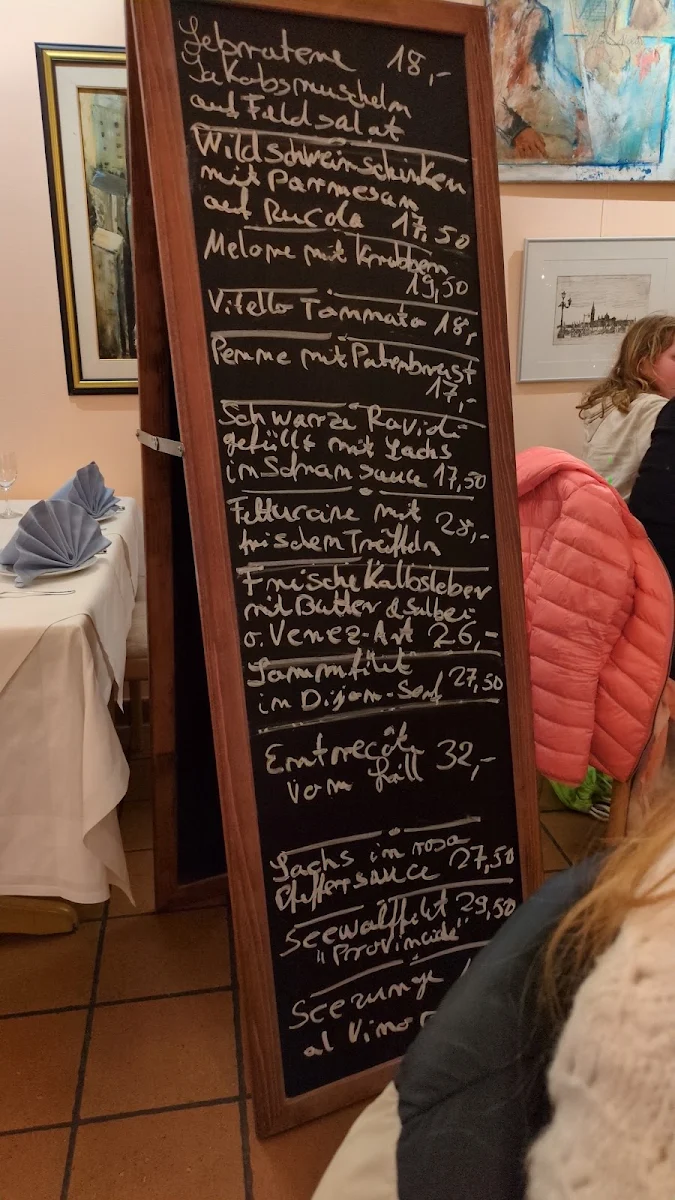 Gebratene 18,-
Jakobsmuscheln
auf Feldsalat
Wildschweinschinken
mit Parmesan
auf Rucola 17,50
Melone mit Krabben
19,50
Vitello Tonnato 18,
Penne mit Putenbrust
17,-
Schwarze Ravioli
gefüllt mit Lachs
in Sahnesauce 17,50
Fettucine mit 28,-
frischem Trüffeln
Frische Kalbsleber
mit Butter & Salbei
o. Venez-Art 26,-
Lammfilet
in Dijon-Senf 27,50
Entrecôte 32,-
vom Grill
Lachs in rosa
Pfeffersauce 27,50
Seewolffilet 29,50
"Provinciale"
Seezunge
al Vino